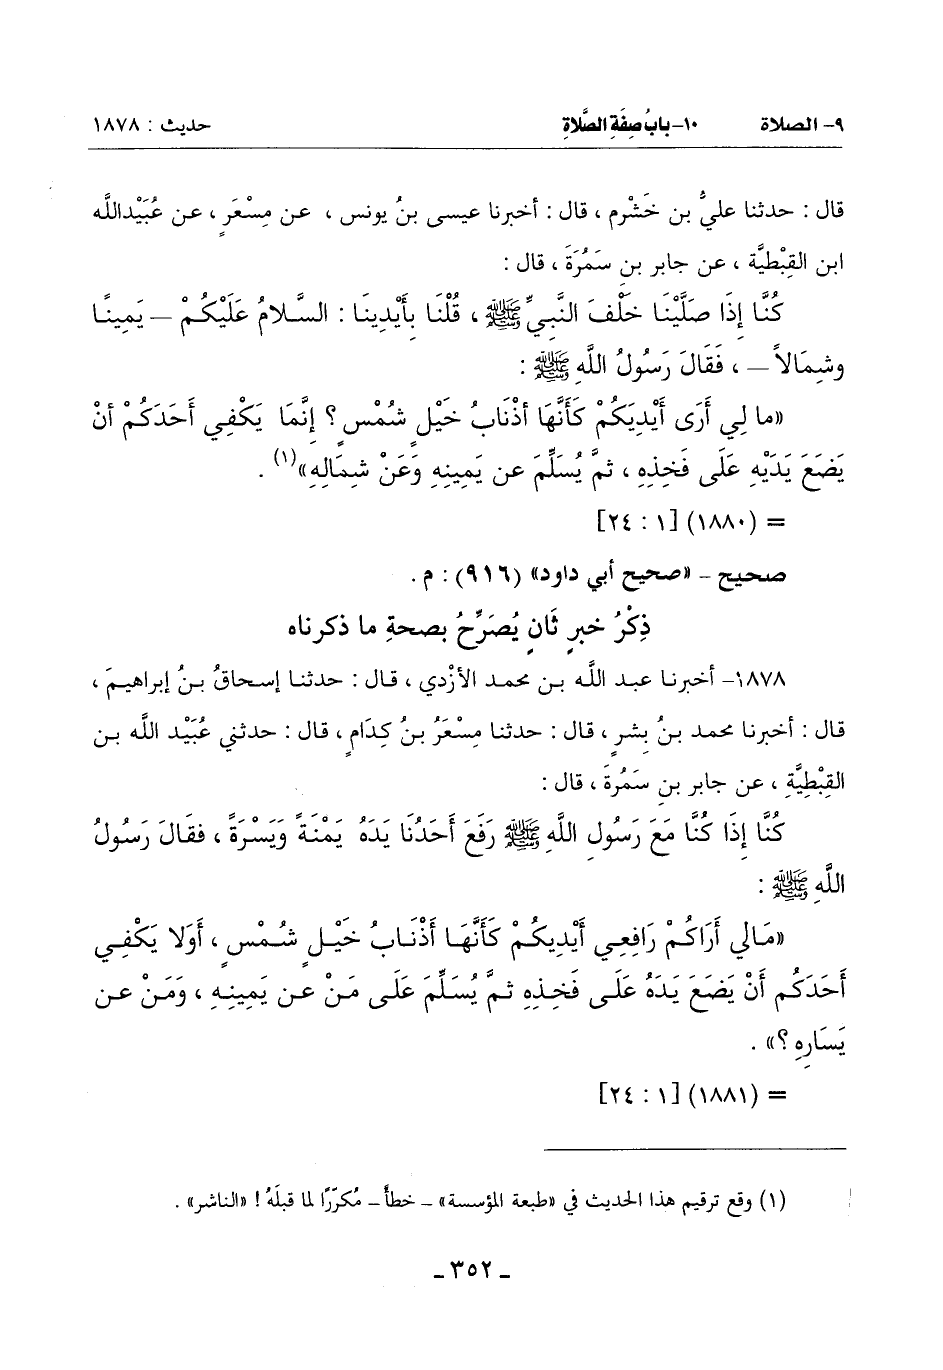 ٩- الصلاة ١٠- بابُ صِفَةِ الصَّلاةِ حديث : ١٨٧٨
قال : حدثنا عليُّ بن خَشْرم ، قال : أخبرنا عيسى بنُ يونس ، عن مِسْعَرٍ ، عن عُبَيْدالله
ابن القِبْطيَّة ، عن جابر بنِ سَمُرَةَ ، قال :
كُنَّا إِذَا صَلَّيْنَا خَلْفَ النَّبيِّ ﷺ ، قُلْنَا بِأَيْدِينَا : السَّلامُ عَلَيْكُمْ – يَمِينًا
وشِمَالاً – ، فَقَالَ رَسُولُ اللَّهِ ﷺ :
«ما لِي أَرَى أَيْدِيَكُمْ كَأَنَّهَا أذْنَابُ خَيْلٍ شُمْسٍ ؟ إِنَّمَا يَكْفِي أَحَدَكُمْ أنْ
يَضَعَ يَدَيْهِ عَلَى فَخِذِهِ ، ثمَّ يُسَلِّمَ عن يَمِينِهِ وَعَنْ شِمَالِهِ»(١) .
= (١٨٨٠) [١ : ٢٤]
صحيح - «صحيح أبي داود» (٩١٦) : م .
ذِكْرُ خبرٍ ثَانٍ يُصَرِّحُ بصحةِ ما ذكرناه
١٨٧٨- أخبرنا عبد الله بن محمد الأزْدي ، قال : حدثنا إسحاقُ بنُ إبراهيمَ ،
قال : أخبرنا محمد بنُ بشرٍ ، قال : حدثنا مِسْعَرُ بنُ كِدَامٍ ، قال : حدثني عُبَيْد الله بن
القِبْطِيَّةِ ، عن جابر بنِ سَمُرةَ ، قال :
كُنَّا إِذَا كُنَّا مَعَ رَسُولِ اللَّهِ ﷺ رَفَعَ أَحَدُنَا يَدَهُ يَمْنَةً وَيَسْرَةً ، فقَالَ رَسُولُ
اللَّهِ ﷺ :
«مَالي أَرَاكُمْ رَافِعِي أَيْدِيكُمْ كَأَنَّهَا أَذْنَابُ خَيْلٍ شُمْسٍ ، أَوَلا يَكْفِي
أَحَدَكُم أَنْ يَضَعَ يَدَهُ عَلَى فَخِذِهِ ثمَّ يُسَلِّمَ عَلَى مَنْ عن يَمِينِهِ ، وَمَنْ عن
يَسَارِهِ ؟» .
= (١٨٨١) [١ : ٢٤]
(١) وقع ترقيم هذا الحديث في «طبعة المؤسسة» - خطأً - مُكرّرًا لما قبلَهُ ! «الناشر» .
- ٣٥٢ -